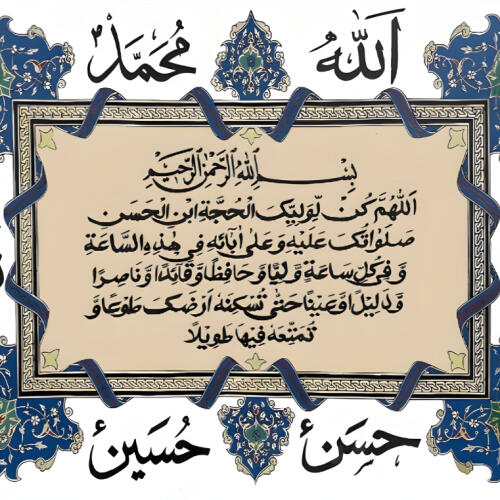 اَللّٰهُ مُحَمَّدٌ
بِسْمِ اللّٰهِ الرَّحْمٰنِ الرَّحِيْمِ
اَللّٰهُمَّ كُنْ لِّوَلِيِّكَ الْحُجَّةِ ابْنِ الْحَسَنِ
صَلَوٰاتُكَ عَلَيْهِ وَعَلىٰ اٰبَائِهِ فِي هٰذِهِ السَّاعَةِ
وَفِي كُلِّ سَاعَةٍ وَلِيًّا وَّحَافِظًا وَّقَائِدًا وَّنَاصِرًا
وَّدَلِيْلًا وَّعَيْنًا حَتّٰى تُسْكِنَهُ اَرْضَكَ طَوْعًا وَّ
تُمَتِّعَهُ فِيْهَا طَوِيْلًا
حَسَنٌ حُسَيْنٌ